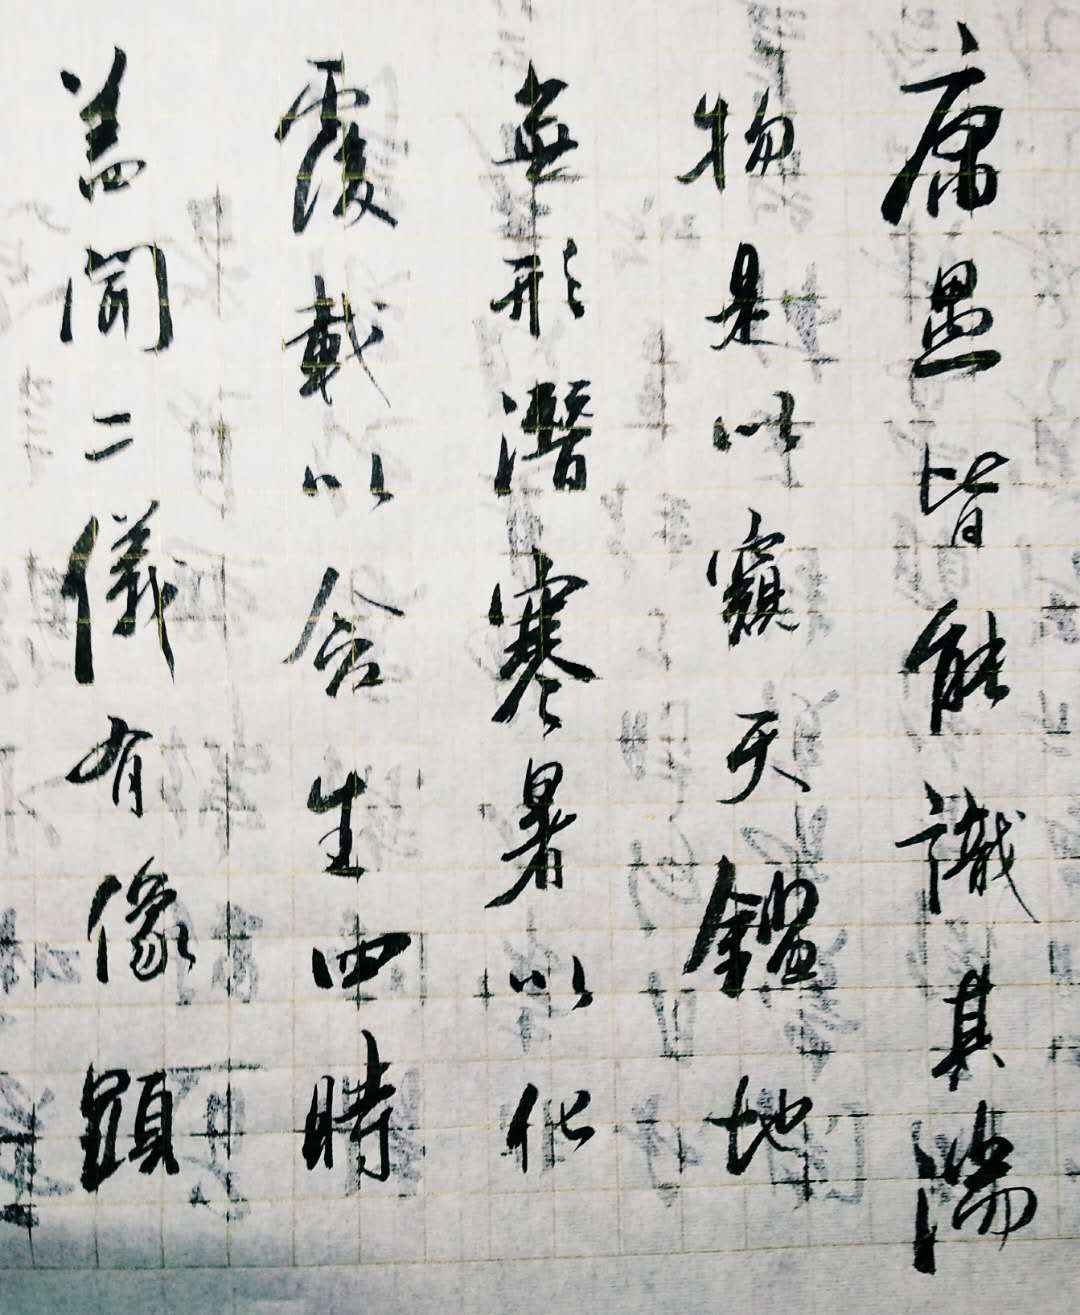 盖聞二儀有像顯
覆載以含生四時
無形潛寒暑以化
物是以窺天鑑地
庸愚皆能識其端